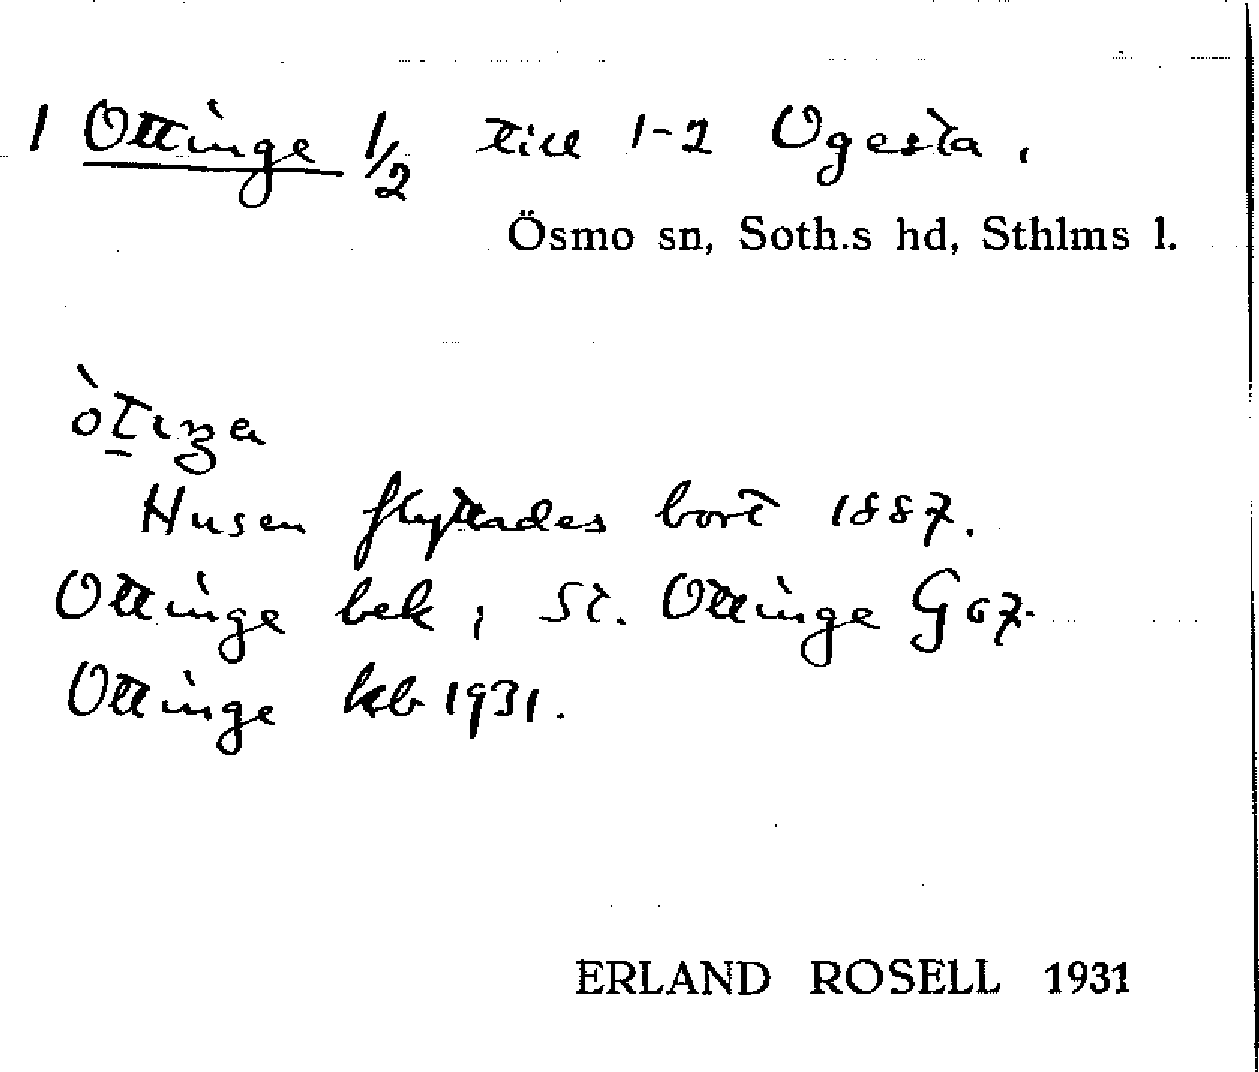 1 Ottinge 1/2 till 1-2 Ogesta.
Ösmo sn, Soth.s hd, Sthlms l.
Husen flyttades bort 1887.
Ottinge bek, St. Ottinge G 67.
Ottinge kb 1931.
ERLAND ROSELL 1931